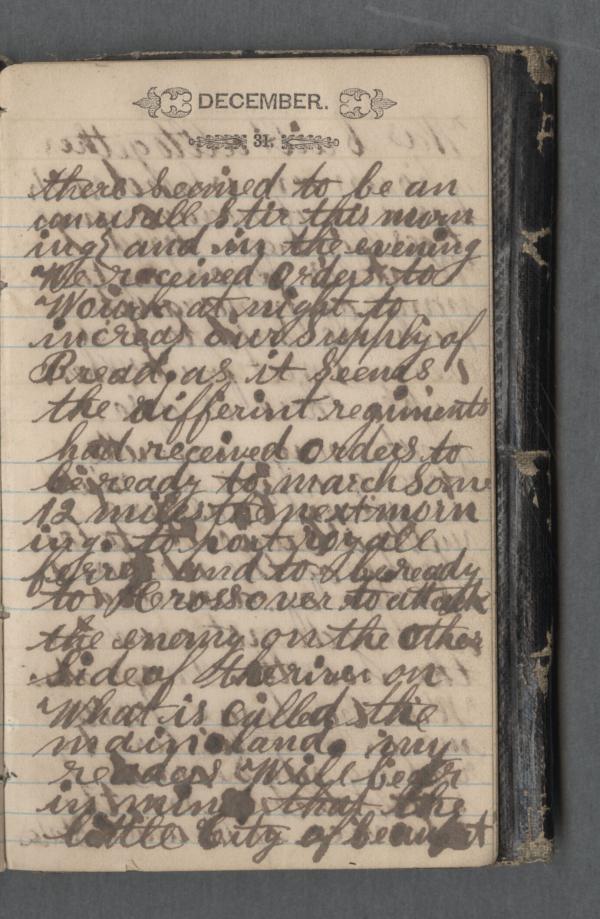 DECEMBER.
31.
there seemed to be an
unusall Stir this morn
ing and in the evening
We received orders to
Wourk at night to
increas our Supply of
Bread, as it seems
the differint regiments
had received orders to
be ready to march Som
12 miles the next morn
ing. to port royall
ferre and to be ready
to Cross over to attack
the enemy on the other
Side of the river on
What is called the
main land. my
readers Will bear
in mind that the
little City of beaufort